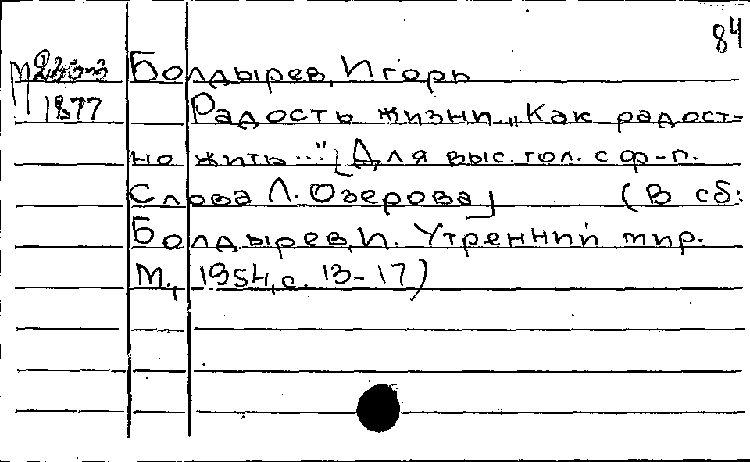 84
Болдырев, Игорь
1877
Радость жизни „Как радост-
но жить..." [Для выс. гол. с ф-п.
Слова Л. Озерова] (В сб:
Болдырев, И. Утренний мир.
М., 1954, с. 13-17)